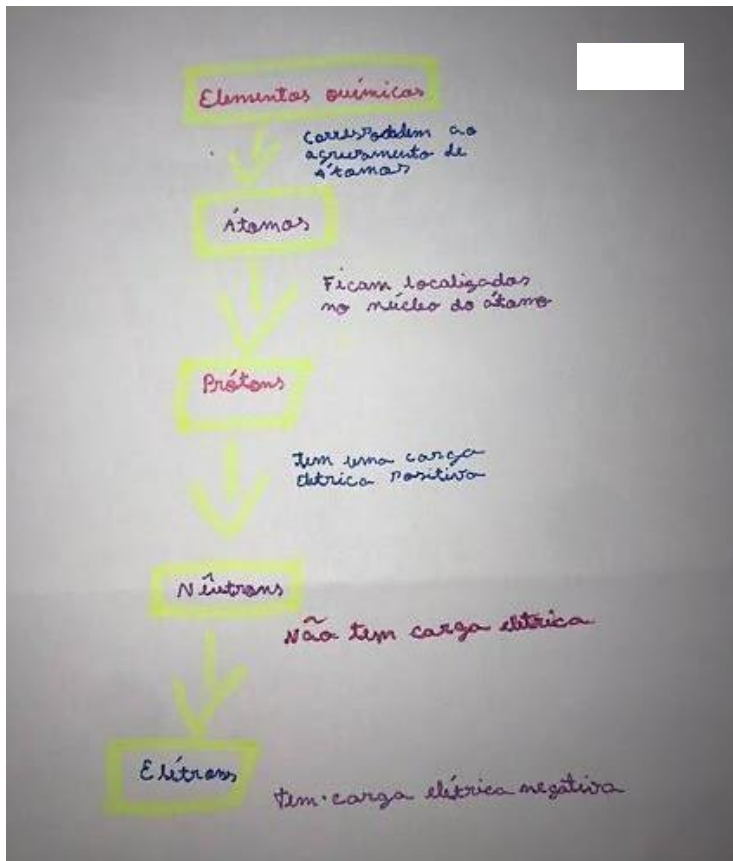 Elementos químicos
Correspodem ao
agrupamento de
Átomos
Átomos
Ficam localizados
no núcleo do átomo
Prótons
tem uma carga
Eletrica Positiva
Nêutrons
Não tem carga elétrica
Elétrons
tem carga elétrica negativa